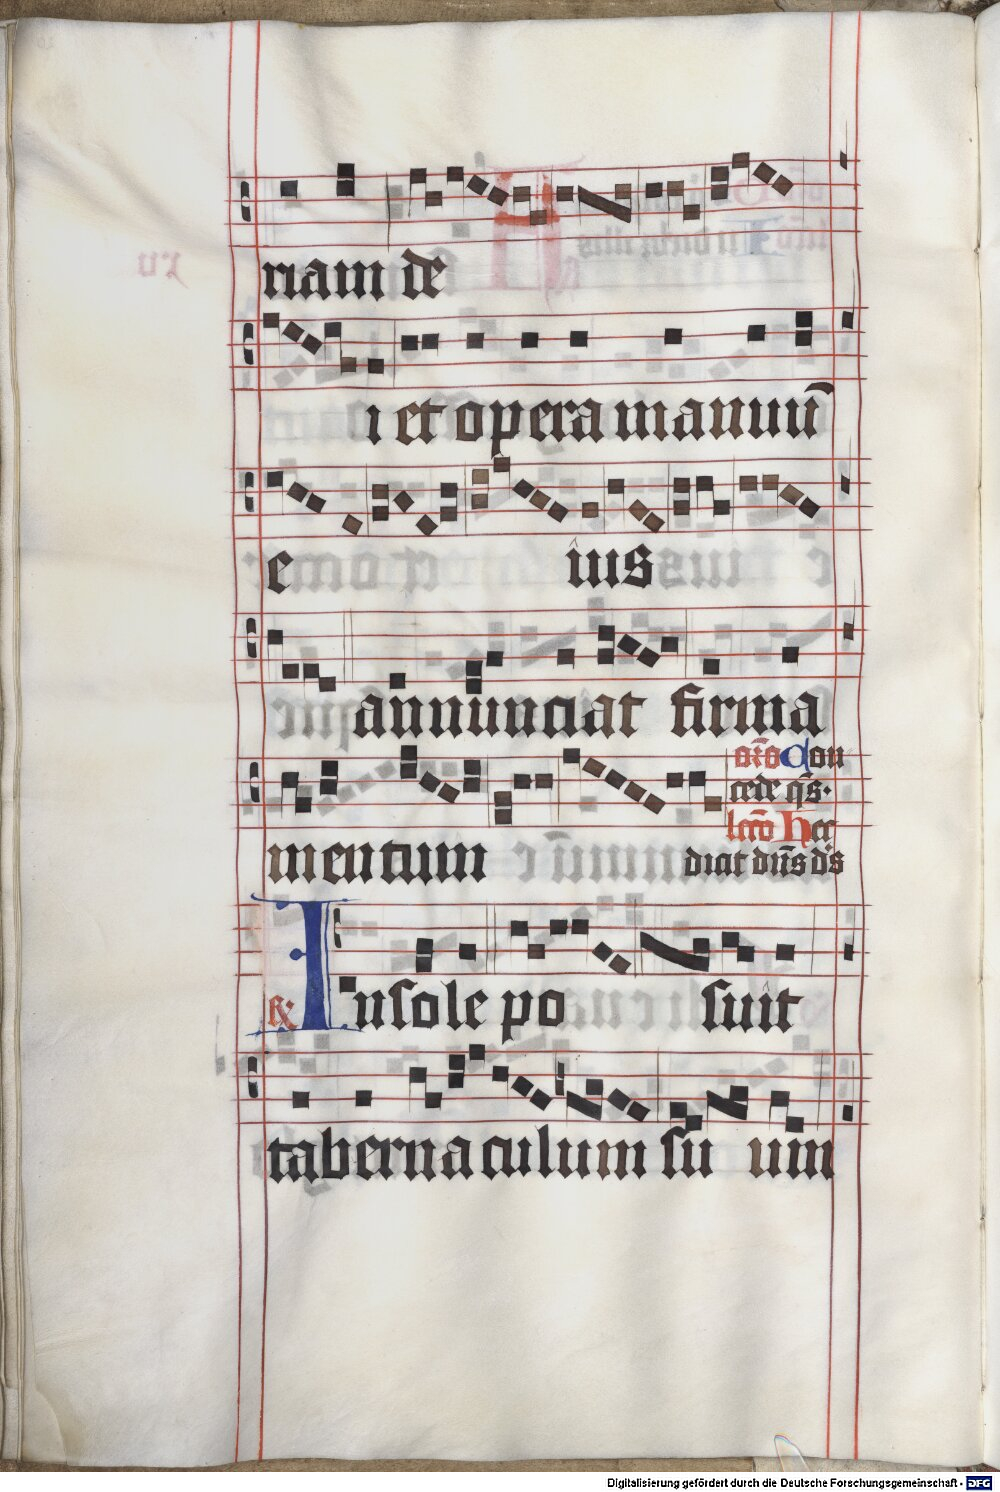 riam de
i et opera manuũ
e ius
annunciat firma
or̃o Con
cede q̃s·
lecõ Hec
mentum
dicit dñs ds
℟ In sole po suit
tabernaculum su um
Digitalisierung gefördert durch die Deutsche Forschungsgemeinschaft - DFG